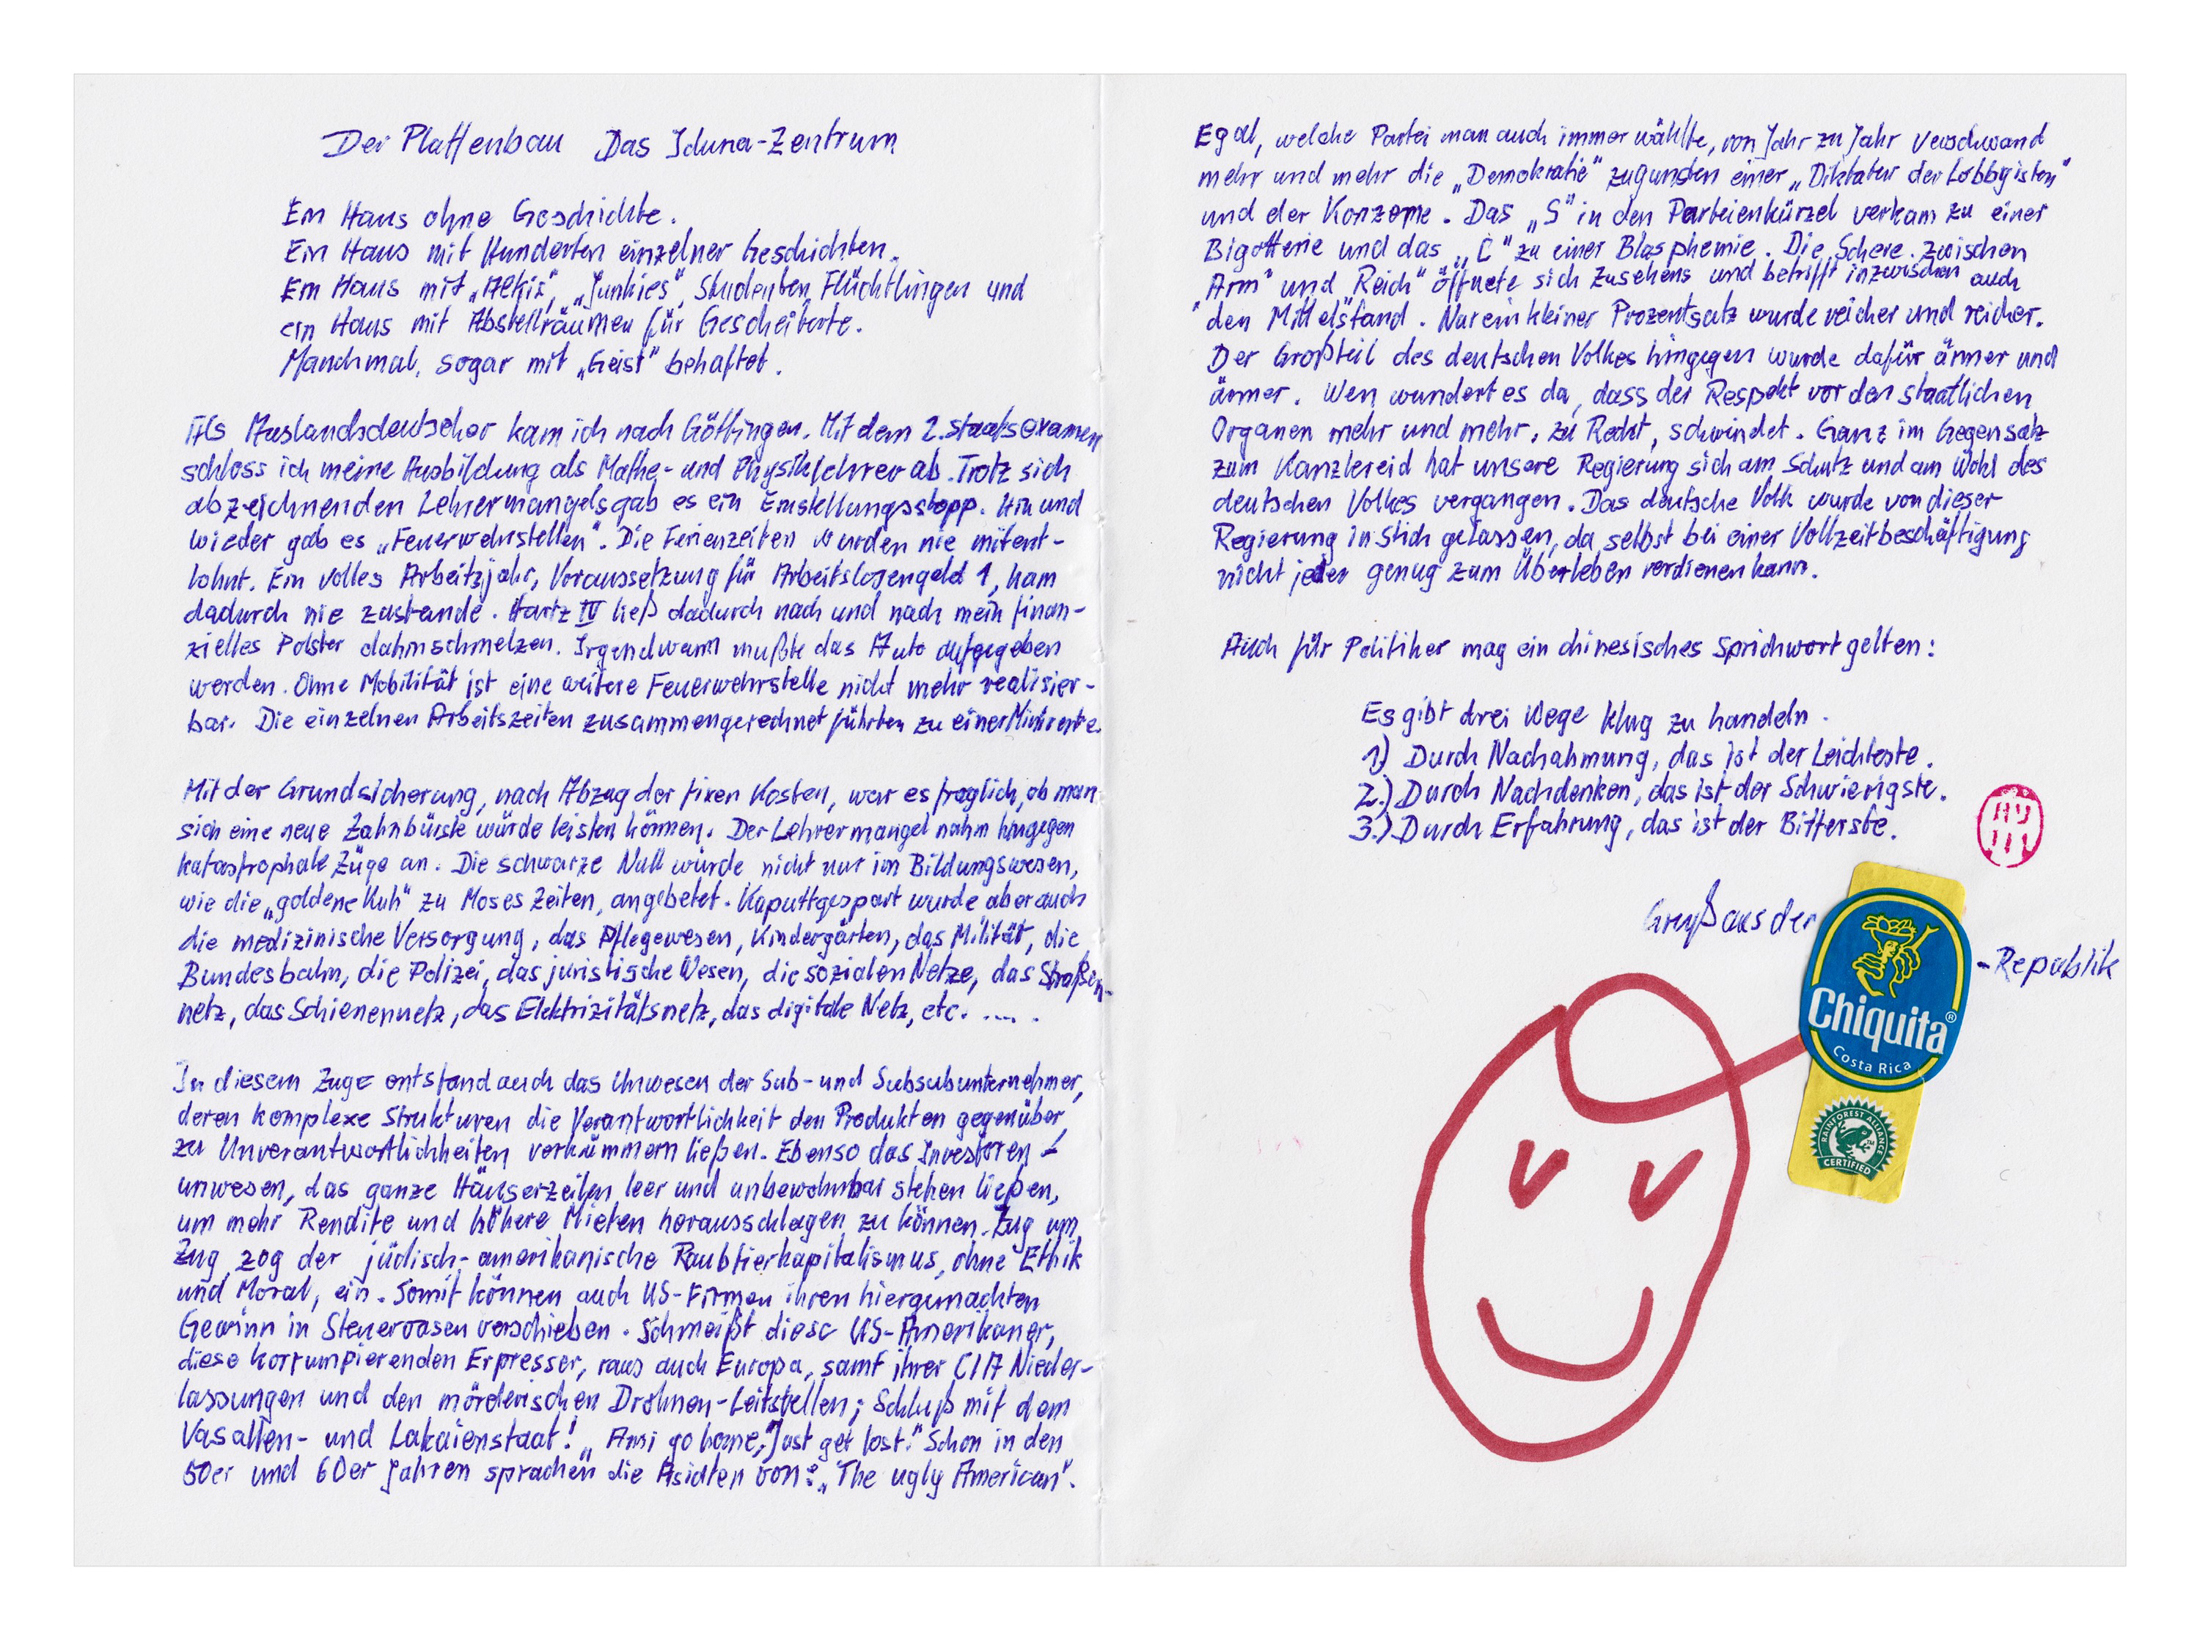 Der Plattenbau Das Iduna-Zentrum
Ein Haus ohne Geschichte.
Ein Haus mit Hunderten einzelner Geschichten.
Ein Haus mit „Alkis", „Junkies", Studenten, Flüchtlingen und
ein Haus mit Abstellräumen für Gescheiterte.
Manchmal, sogar mit „Geist" behaftet.
Als Auslandsdeutscher kam ich nach Göttingen. Mit dem 2. Staatsexamen
schloss ich meine Ausbildung als Mathe- und Physiklehrer ab. Trotz sich
abzeichnenden Lehrermangels gab es ein Einstellungsstopp. Hin und
wieder gab es „Feuerwehrstellen". Die Ferienzeiten wurden nie mitent-
lohnt. Ein volles Arbeitzjahr, Voraussetzung für Arbeitslosengeld 1, kam
dadurch nie zustande. Hartz IV ließ dadurch nach und nach mein finan-
zielles Polster dahinschmelzen. Irgendwann mußte das Auto aufgegeben
werden. Ohne Mobilität ist eine weitere Feuerwehrstelle nicht mehr realisier-
bar. Die einzelnen Arbeitszeiten zusammengerechnet führten zu einer Minirente.
Mit der Grundsicherung, nach Abzug der fixen Kosten, war es fraglich, ob man
sich eine neue Zahnbürste würde leisten können. Der Lehrermangel nahm hingegen
katastrophale Züge an. Die schwarze Null wurde nicht nur im Bildungswesen,
wie die „goldene Kuh" zu Moses Zeiten, angebetet. Kaputtgespart wurde aber auch
die medizinische Versorgung, das Pflegewesen, Kindergärten, das Militär, die
Bundesbahn, die Polizei, das juristische Wesen, die sozialen Netze, das Straßen-
netz, das Schienennetz, das Elektrizitätsnetz, das digitale Netz, etc. .... .
In diesem Zuge entstand auch das Unwesen der Sub- und Subsubunternehmer,
deren komplexe Strukturen die Verantwortlichkeit den Produkten gegenüber,
zu Unverantwortlichkeiten verkümmern ließen. Ebenso das Investoren-
unwesen, das ganze Häuserzeilen leer und unbewohnbar stehen ließen,
um mehr Rendite und höhere Mieten herausschlagen zu können. Zug um
Zug zog der jüdisch-amerikanische Raubtierkapitalismus, ohne Ethik
und Moral, ein. Somit können auch US-Firmen ihren hiergemachten
Gewinn in Steueroasen verschieben. Schmeißt diese US-Amerikaner,
diese korrumpierenden Erpresser, raus auch Europa, samt ihrer CIA Nieder-
lassungen und den mörderischen Drohnen-Leitstellen; Schluß mit dem
Vasallen- und Lakaienstaat! „Ami go home, Just get lost." Schon in den
50er und 60er Jahren sprachen die Asiaten von: „The ugly American".
Egal, welche Partei man auch immer wählte, von Jahr zu Jahr verschwand
mehr und mehr die „Demokratie" zugunsten einer „Diktatur der Lobbyisten"
und der Konzerne. Das „S" in den Parteienkürzel verkam zu einer
Bigotterie und das „C" zu einer Blasphemie. Die Schere zwischen
"Arm" und „Reich" öffnete sich zusehens und betrifft inzwischen auch
den Mittelstand. Nur ein kleiner Prozentsatz wurde reicher und reicher.
Der Großteil des deutschen Volkes hingegen wurde dafür ärmer und
ärmer. Wen wundert es da, dass der Respekt vor den staatlichen
Organen mehr und mehr, zu Recht, schwindet. Ganz im Gegensatz
zum Kanzlereid hat unsere Regierung sich am Schutz und am Wohl des
deutschen Volkes vergangen. Das deutsche Volk wurde von dieser
Regierung in Stich gelassen, da selbst bei einer Vollzeitbeschäftigung
nicht jeder genug zum Überleben verdienen kann.
Auch für Politiker mag ein chinesisches Sprichwort gelten:
Es gibt drei Wege klug zu handeln.
1) Durch Nachahmung, das ist der Leichteste.
2.) Durch Nachdenken, das ist der Schwierigste.
3.) Durch Erfahrung, das ist der Bitterste.
Gruß aus der
-Republik
Chiquita®
Costa Rica
RAINFOREST ALLIANCE
CERTIFIED